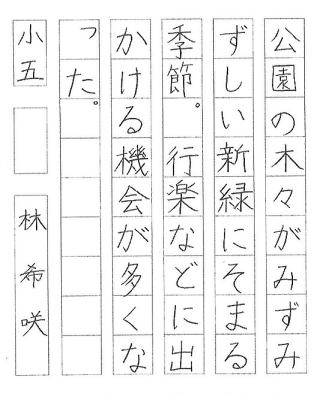 公園の木々がみずみ
ずしい新緑にそまる
季節。行楽などに出
かける機会が多くな
った。
小五
林希咲